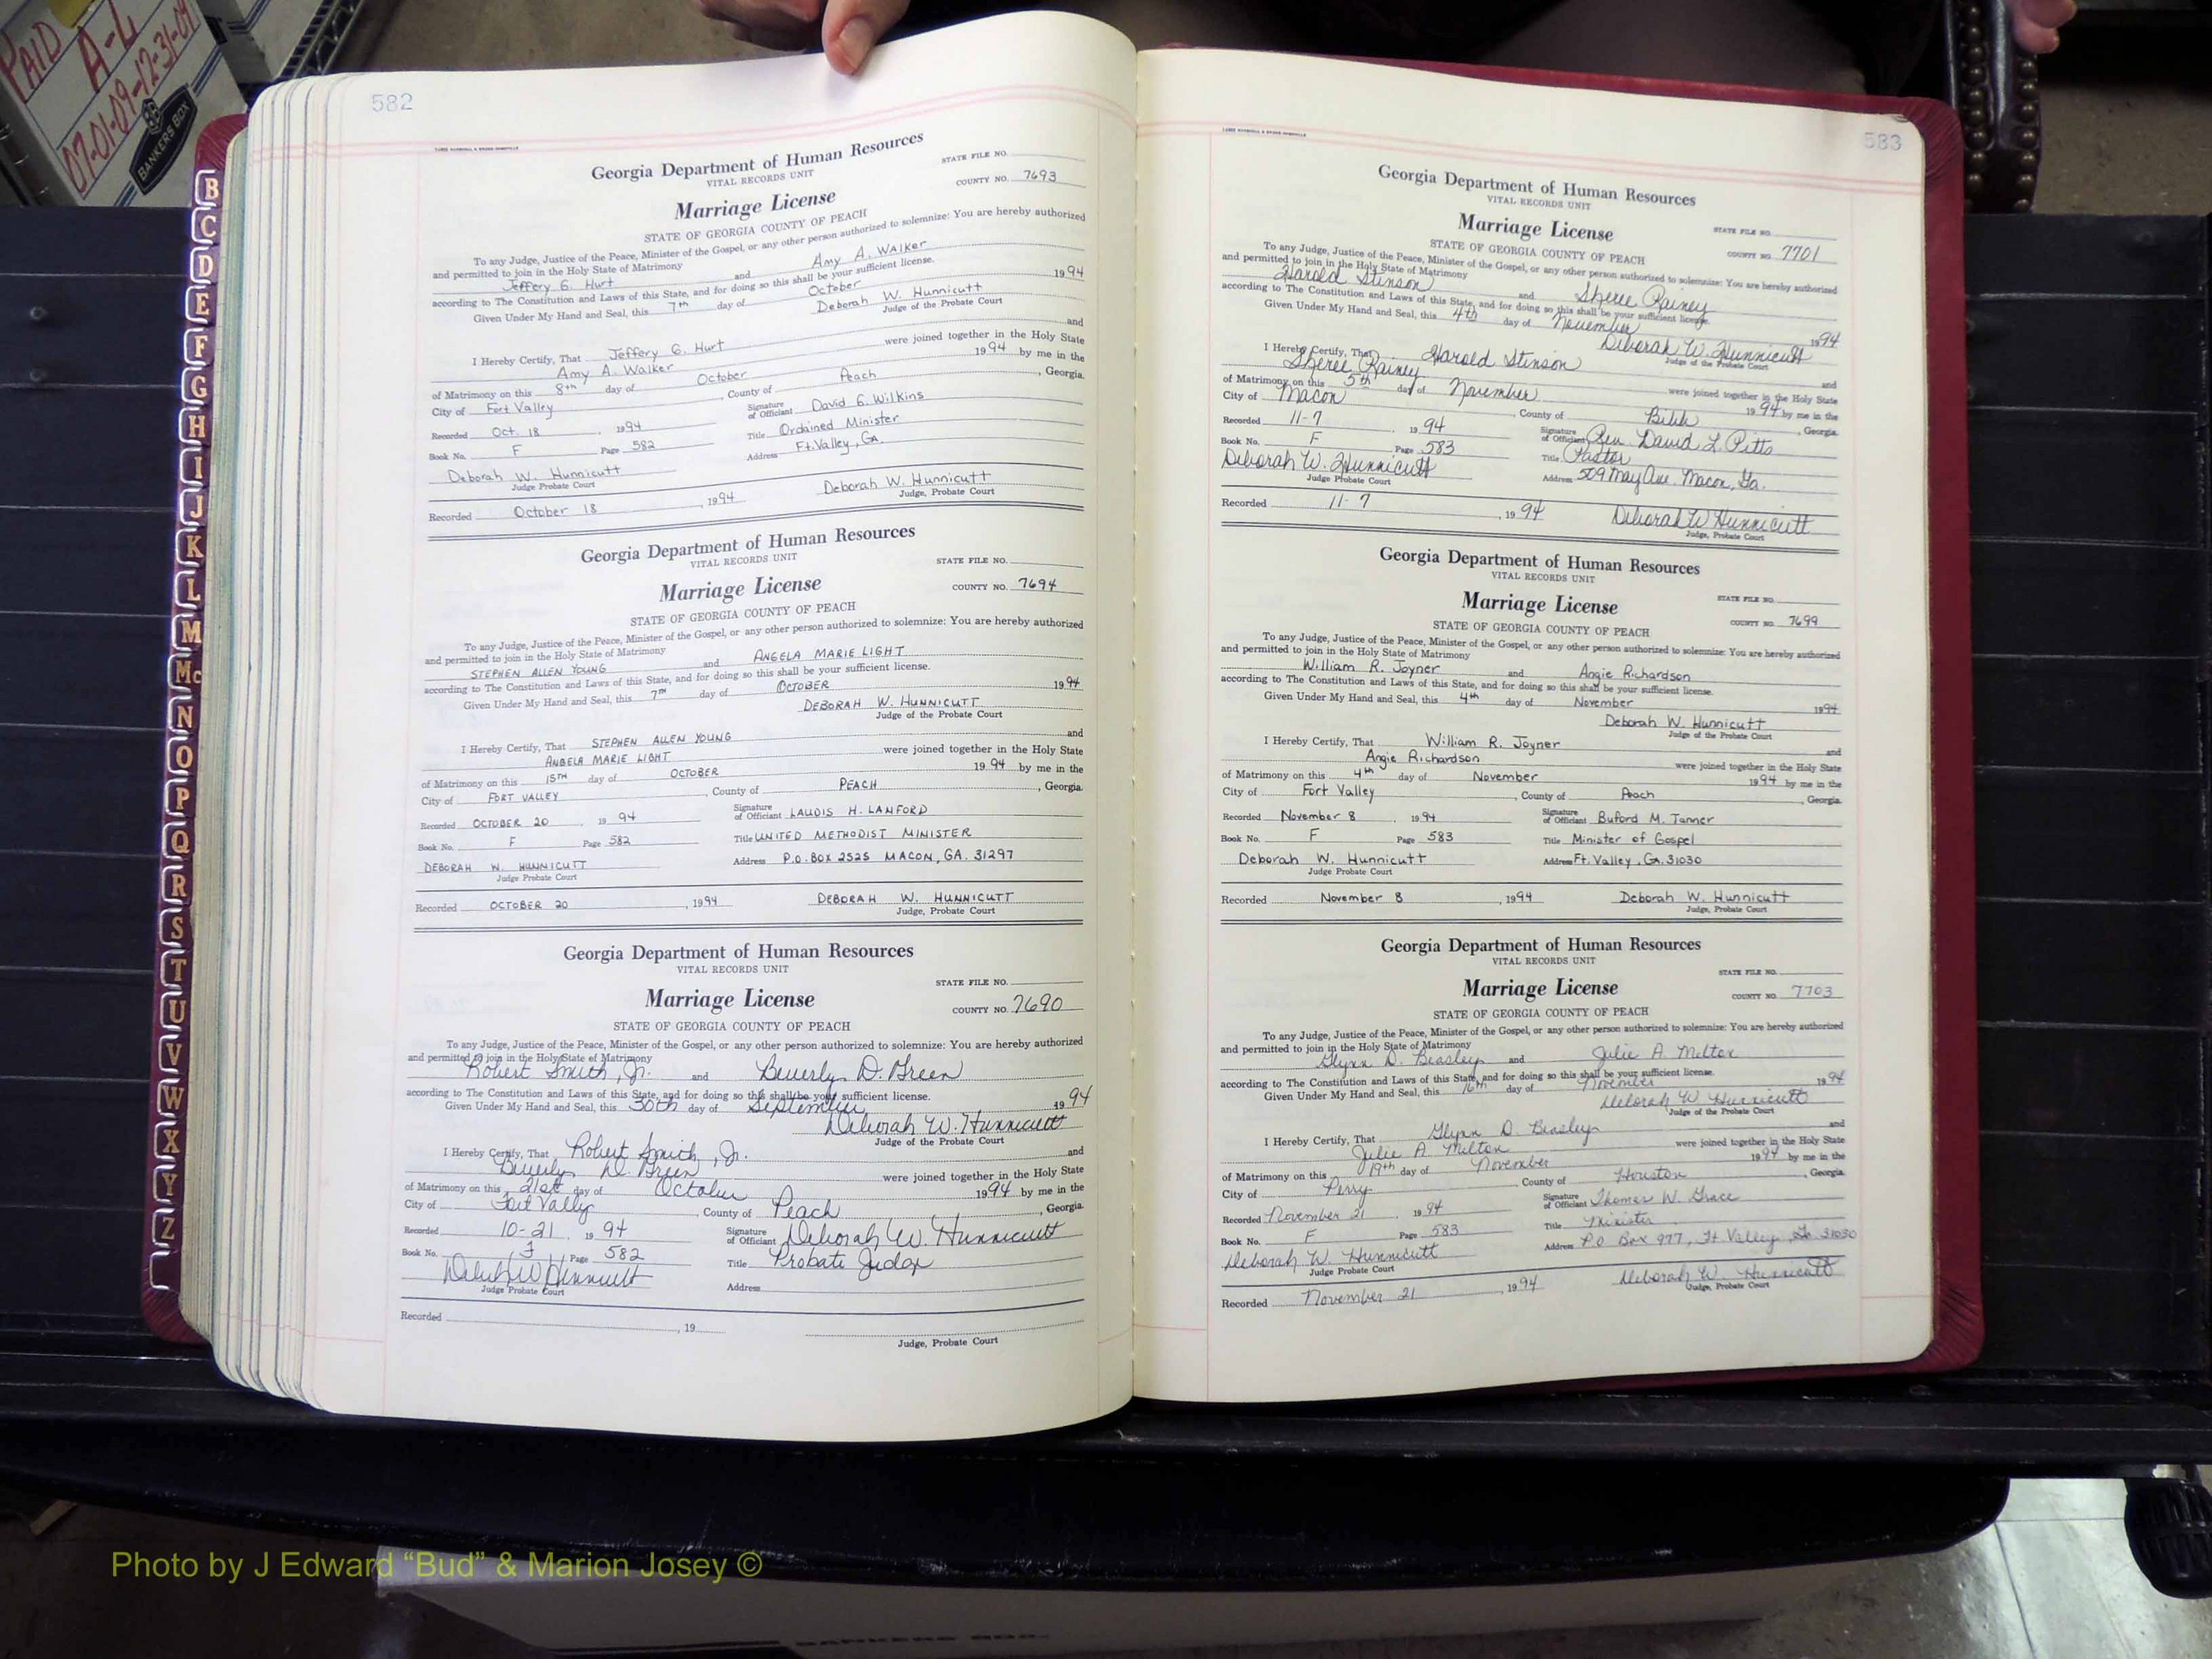 PAID
A-L
07-01-09-12-31-09
BANKERS BOX
B
C
D
E
F
G
H
I
J
K
L
M
Mc
N
O
P
Q
R
S
T
U
V
W
X
Y
Z
582
Georgia Department of Human Resources
VITAL RECORDS UNIT
STATE FILE NO.
COUNTY NO. 7693
Marriage License
STATE OF GEORGIA COUNTY OF PEACH
To any Judge, Justice of the Peace, Minister of the Gospel, or any other person authorized to solemnize: You are hereby authorized
and permitted to join in the Holy State of Matrimony
Jeffery G. Hurt and Amy A. Walker
according to The Constitution and Laws of this State, and for doing so this shall be your sufficient license.
Given Under My Hand and Seal, this 7th day of October 1994
Deborah W. Hunnicutt
Judge of the Probate Court
I Hereby Certify, That Jeffery G. Hurt and
Amy A. Walker were joined together in the Holy State
of Matrimony on this 8th day of October 1994 by me in the
City of Fort Valley, County of Peach, Georgia.
Recorded Oct. 18, 1994 Signature of Officiant David G. Wilkins
Book No. F Page 582 Title Ordained Minister
Deborah W. Hunnicutt Address Ft. Valley, GA.
Judge Probate Court
Recorded October 18, 1994 Deborah W. Hunnicutt
Judge, Probate Court
Georgia Department of Human Resources
VITAL RECORDS UNIT
STATE FILE NO.
COUNTY NO. 7694
Marriage License
STATE OF GEORGIA COUNTY OF PEACH
To any Judge, Justice of the Peace, Minister of the Gospel, or any other person authorized to solemnize: You are hereby authorized
and permitted to join in the Holy State of Matrimony
STEPHEN ALLEN YOUNG and ANGELA MARIE LIGHT
according to The Constitution and Laws of this State, and for doing so this shall be your sufficient license.
Given Under My Hand and Seal, this 7TH day of OCTOBER 1994
DEBORAH W. HUNNICUTT
Judge of the Probate Court
I Hereby Certify, That STEPHEN ALLEN YOUNG and
ANGELA MARIE LIGHT were joined together in the Holy State
of Matrimony on this 15TH day of OCTOBER 1994 by me in the
City of FORT VALLEY, County of PEACH, Georgia.
Recorded OCTOBER 20, 1994 Signature of Officiant LAUDIS H. LANFORD
Book No. F Page 582 Title UNITED METHODIST MINISTER
DEBORAH W. HUNNICUTT Address P.O. BOX 2525 MACON, GA. 31297
Judge Probate Court
Recorded OCTOBER 20, 1994 DEBORAH W. HUNNICUTT
Judge, Probate Court
Georgia Department of Human Resources
VITAL RECORDS UNIT
STATE FILE NO.
Marriage License
COUNTY NO. 7690
STATE OF GEORGIA COUNTY OF PEACH
To any Judge, Justice of the Peace, Minister of the Gospel, or any other person authorized to solemnize: You are hereby authorized
and permitted to join in the Holy State of Matrimony
Robert Smith, Jr. and Beverly D. Green
according to The Constitution and Laws of this State, and for doing so this shall be your sufficient license.
Given Under My Hand and Seal, this 30th day of September 1994
Deborah W. Hunnicutt
Judge of the Probate Court
I Hereby Certify, That Robert Smith, Jr. and
Beverly D. Green were joined together in the Holy State
of Matrimony on this 21st day of October 1994 by me in the
City of Fort Valley, County of Peach, Georgia.
Recorded 10-21, 1994 Signature of Officiant Deborah W. Hunnicutt
Book No. F Page 582 Title Probate Judge
Deborah W Hunnicutt Address
Judge Probate Court
Recorded , 19
Judge, Probate Court
583
Georgia Department of Human Resources
VITAL RECORDS UNIT
Marriage License
STATE FILE NO.
STATE OF GEORGIA COUNTY OF PEACH
COUNTY NO. 7701
To any Judge, Justice of the Peace, Minister of the Gospel, or any other person authorized to solemnize: You are hereby authorized
and permitted to join in the Holy State of Matrimony
Harold Stinson and Sheree Rainey
according to The Constitution and Laws of this State, and for doing so this shall be your sufficient license.
Given Under My Hand and Seal, this 4th day of November 1994
Deborah W. Hunnicutt
Judge of the Probate Court
I Hereby Certify, That Harold Stinson and
Sheree Rainey were joined together in the Holy State
of Matrimony on this 5th day of November 1994 by me in the
City of Macon, County of Bibb, Georgia.
Recorded 11-7, 1994 Signature of Officiant Rev. David L. Pitts
Book No. F Page 583 Title Pastor
Deborah W. Hunnicutt Address 509 May Ave. Macon, Ga.
Judge Probate Court
Recorded 11-7, 1994 Deborah W Hunnicutt
Judge, Probate Court
Georgia Department of Human Resources
VITAL RECORDS UNIT
Marriage License
STATE FILE NO.
STATE OF GEORGIA COUNTY OF PEACH
COUNTY NO. 7699
To any Judge, Justice of the Peace, Minister of the Gospel, or any other person authorized to solemnize: You are hereby authorized
and permitted to join in the Holy State of Matrimony
William R. Joyner and Angie Richardson
according to The Constitution and Laws of this State, and for doing so this shall be your sufficient license.
Given Under My Hand and Seal, this 4th day of November 1994
Deborah W. Hunnicutt
Judge of the Probate Court
I Hereby Certify, That William R. Joyner and
Angie Richardson were joined together in the Holy State
of Matrimony on this 4th day of November 1994 by me in the
City of Fort Valley, County of Peach, Georgia.
Recorded November 8, 1994 Signature of Officiant Buford M. Tanner
Book No. F Page 583 Title Minister of Gospel
Deborah W. Hunnicutt Address Ft. Valley, GA. 31030
Judge Probate Court
Recorded November 8, 1994 Deborah W. Hunnicutt
Judge, Probate Court
Georgia Department of Human Resources
VITAL RECORDS UNIT
STATE FILE NO.
Marriage License
COUNTY NO. 7703
STATE OF GEORGIA COUNTY OF PEACH
To any Judge, Justice of the Peace, Minister of the Gospel, or any other person authorized to solemnize: You are hereby authorized
and permitted to join in the Holy State of Matrimony
Glynn D. Beasley and Julie A. Milton
according to The Constitution and Laws of this State, and for doing so this shall be your sufficient license.
Given Under My Hand and Seal, this 16th day of November 1994
Deborah W Hunnicutt
Judge of the Probate Court
I Hereby Certify, That Glynn D. Beasley and
Julie A. Milton were joined together in the Holy State
of Matrimony on this 19th day of November 1994 by me in the
City of Perry, County of Houston, Georgia.
Recorded November 21, 1994 Signature of Officiant Thomas W. Grace
Book No. F Page 583 Title Minister
Deborah W. Hunnicutt Address P.O Box 977, Ft. Valley, Ga 31030
Judge Probate Court
Recorded November 21, 1994 Deborah W. Hunnicutt
Judge, Probate Court
Photo by J Edward “Bud” & Marion Josey ©